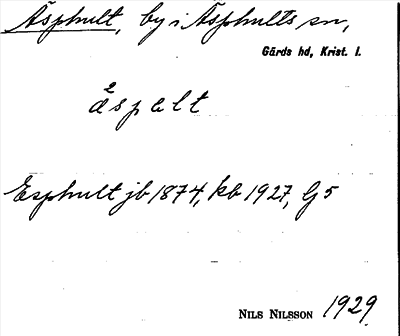 Äsphult, by i Äsphults sn,
Gärds hd, Krist. l.
2
äspelt
Esphult jb 1874, kb 1927, Gj 5
NILS NILSSON 1929